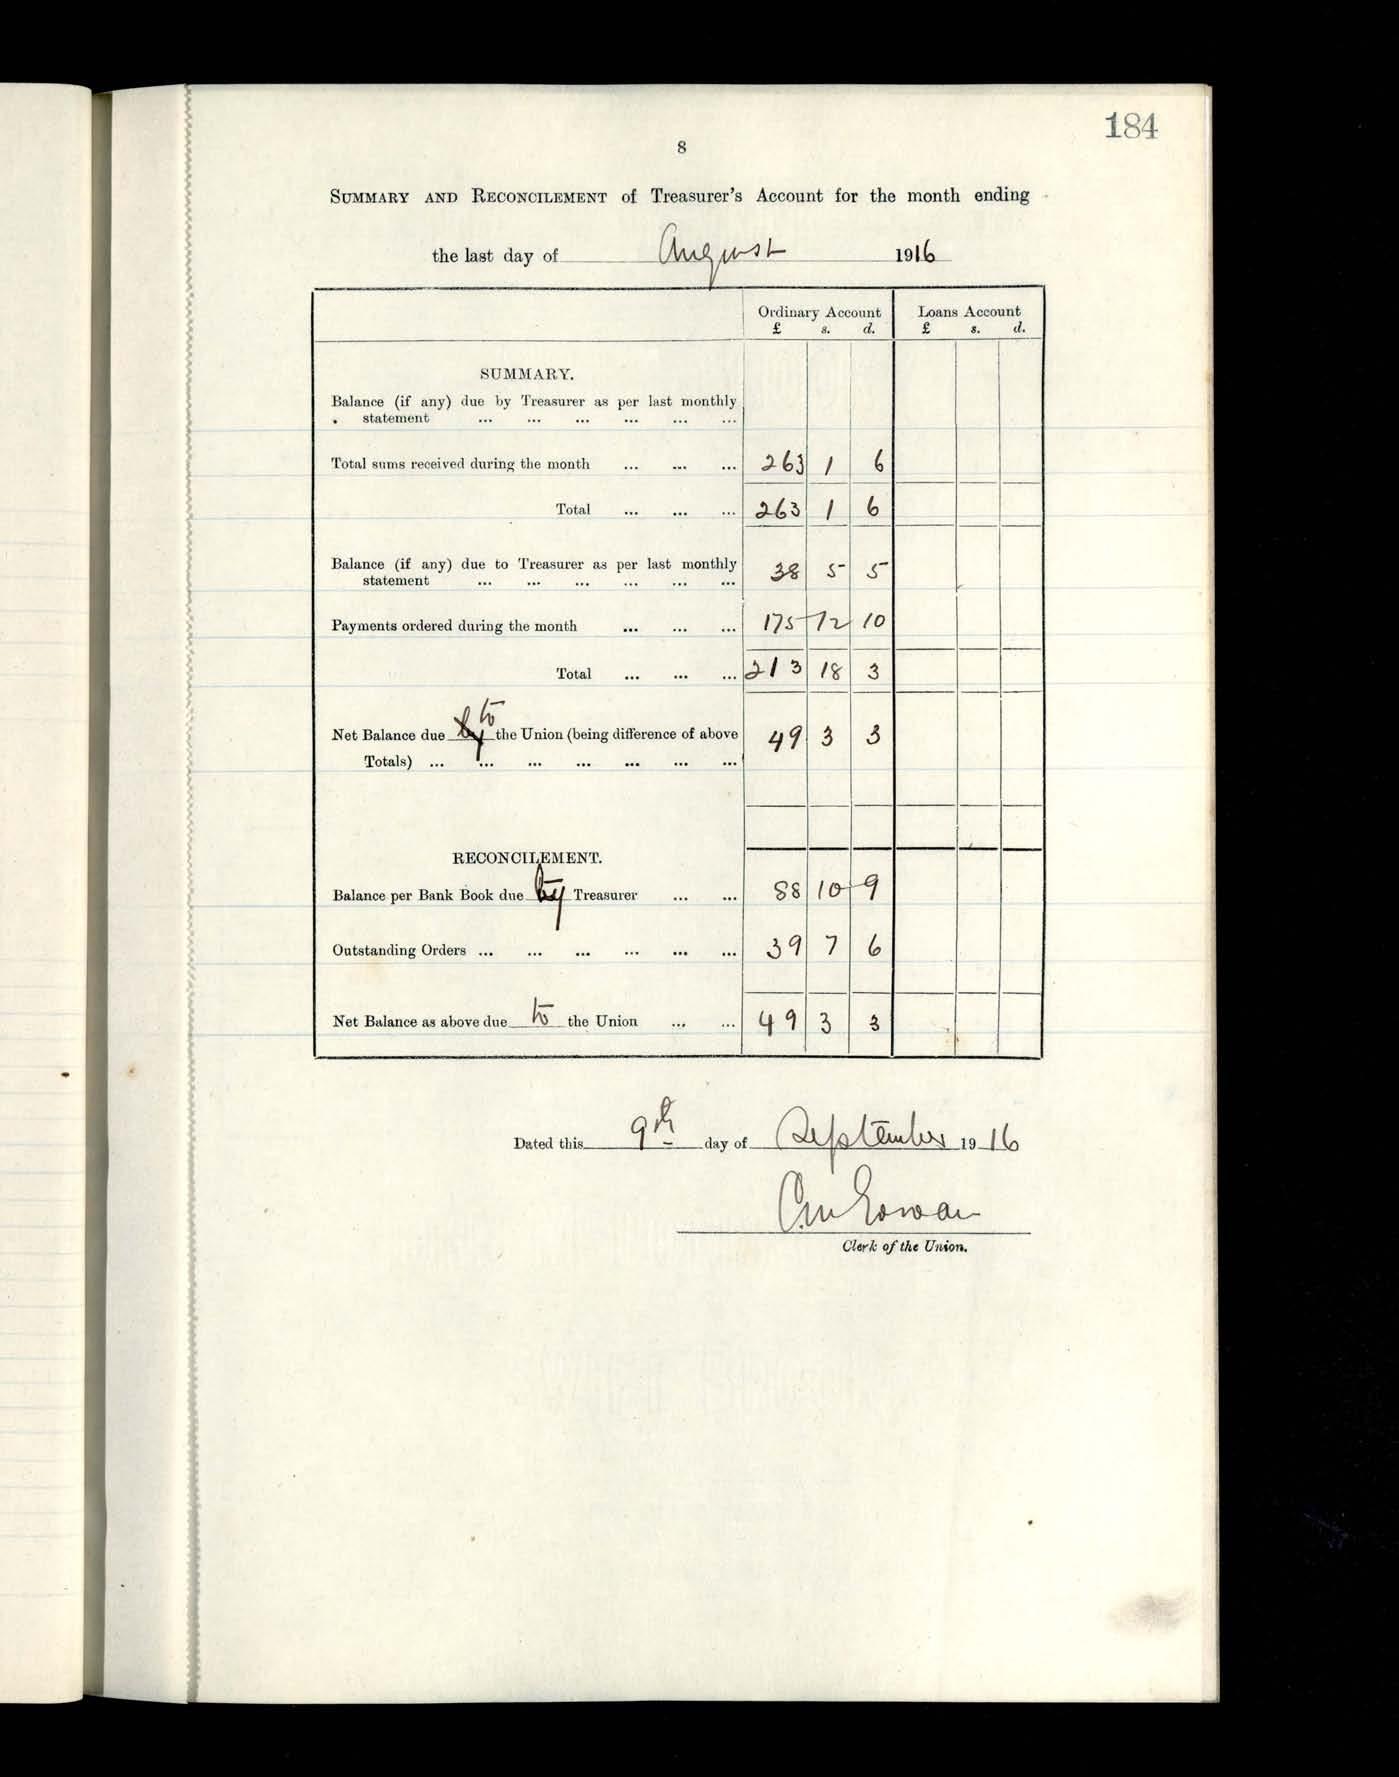 184
8
SUMMARY AND RECONCILEMENT of Treasurer's Account for the month ending
the last day of August 1916
Ordinary Account Loans Account
£ s. d. £ s. d.
SUMMARY.
Balance (if any) due by Treasurer as per last monthly
statement ... ... ... ... ... ...
Total sums received during the month ... ... ... 263 1 6
Total ... ... ... 263 1 6
Balance (if any) due to Treasurer as per last monthly
statement ... ... ... ... ... ... 38 5 5
Payments ordered during the month ... ... ... 175 12 10
Total ... ... ... 213 18 3
to
Net Balance due by the Union (being difference of above 49 3 3
Totals) ... ... ... ... ... ... ...
RECONCILEMENT.
Balance per Bank Book due by Treasurer ... ... 88 10 9
Outstanding Orders ... ... ... ... ... ... 39 7 6
Net Balance as above due to the Union ... ... 49 3 3
Dated this 9th day of September 1916
Clerk of the Union.